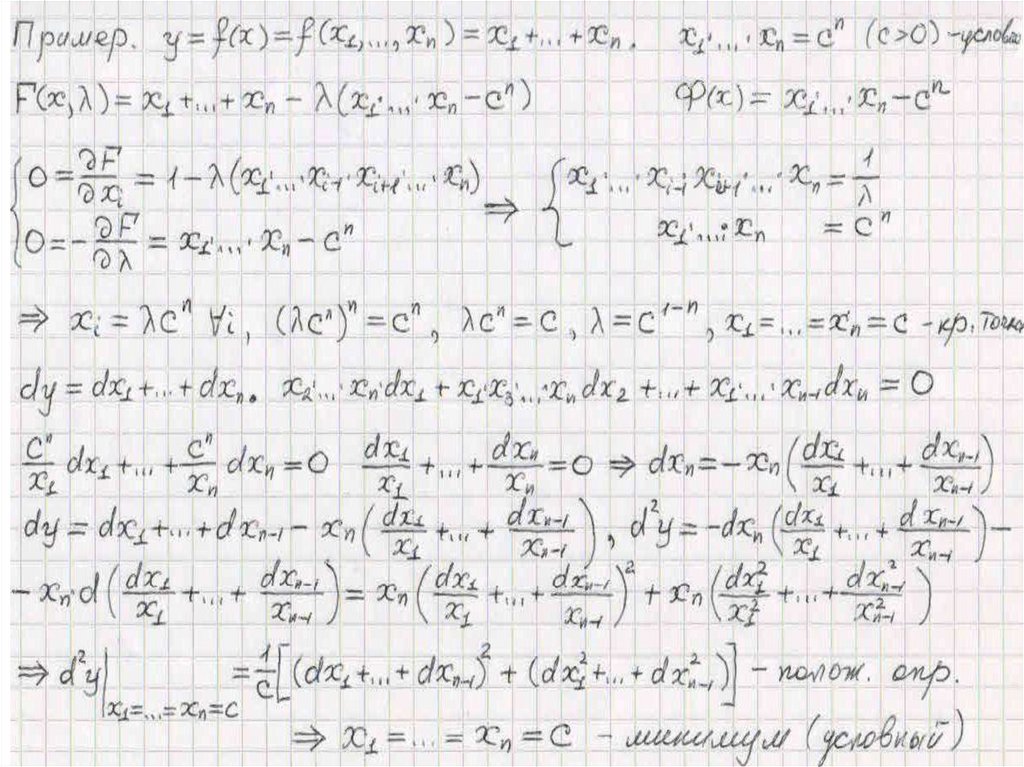 Пример. y = f(x) = f(x₁,...,xₙ) = x₁+...+xₙ. x₁·...·xₙ = cⁿ (c>0) – услови
F(x,λ) = x₁+...+xₙ − λ(x₁·...·xₙ − cⁿ) Φ(x) = x₁·...·xₙ − cⁿ
{ 0 = ∂F/∂xᵢ = 1 − λ(x₁·...·xᵢ₋₁·xᵢ₊₁·...·xₙ) ⇒ { x₁·...·xᵢ₋₁xᵢ₊₁·...·xₙ = 1/λ
0 = −∂F/∂λ = x₁·...·xₙ − cⁿ x₁·...·xₙ = cⁿ
⇒ xᵢ = λcⁿ ∀i, (λcⁿ)ⁿ = cⁿ, λcⁿ = c, λ = c¹⁻ⁿ, x₁=...=xₙ = c – кр. точка
dy = dx₁+...+dxₙ. x₂·...·xₙdx₁ + x₁·x₃·...·xₙdx₂ +...+ x₁·...·xₙ₋₁dxₙ = 0
cⁿ/x₁ dx₁+...+ cⁿ/xₙ dxₙ = 0 dx₁/x₁ +...+ dxₙ/xₙ = 0 ⇒ dxₙ = −xₙ(dx₁/x₁ +...+ dxₙ₋₁/xₙ₋₁)
dy = dx₁+...+dxₙ₋₁ − xₙ(dx₁/x₁ +...+ dxₙ₋₁/xₙ₋₁), d²y = −dxₙ(dx₁/x₁ +...+ dxₙ₋₁/xₙ₋₁) −
− xₙ·d(dx₁/x₁ +...+ dxₙ₋₁/xₙ₋₁) = xₙ(dx₁/x₁ +...+ dxₙ₋₁/xₙ₋₁)² + xₙ(dx₁²/x₁² +...+ dxₙ₋₁²/xₙ₋₁²)
⇒ d²y|x₁=...=xₙ=c = 1/c[(dx₁+...+dxₙ₋₁)² + (dx₁²+...+dxₙ₋₁²)] – полож. опр.
⇒ x₁ = ... = xₙ = c – минимум (условный)